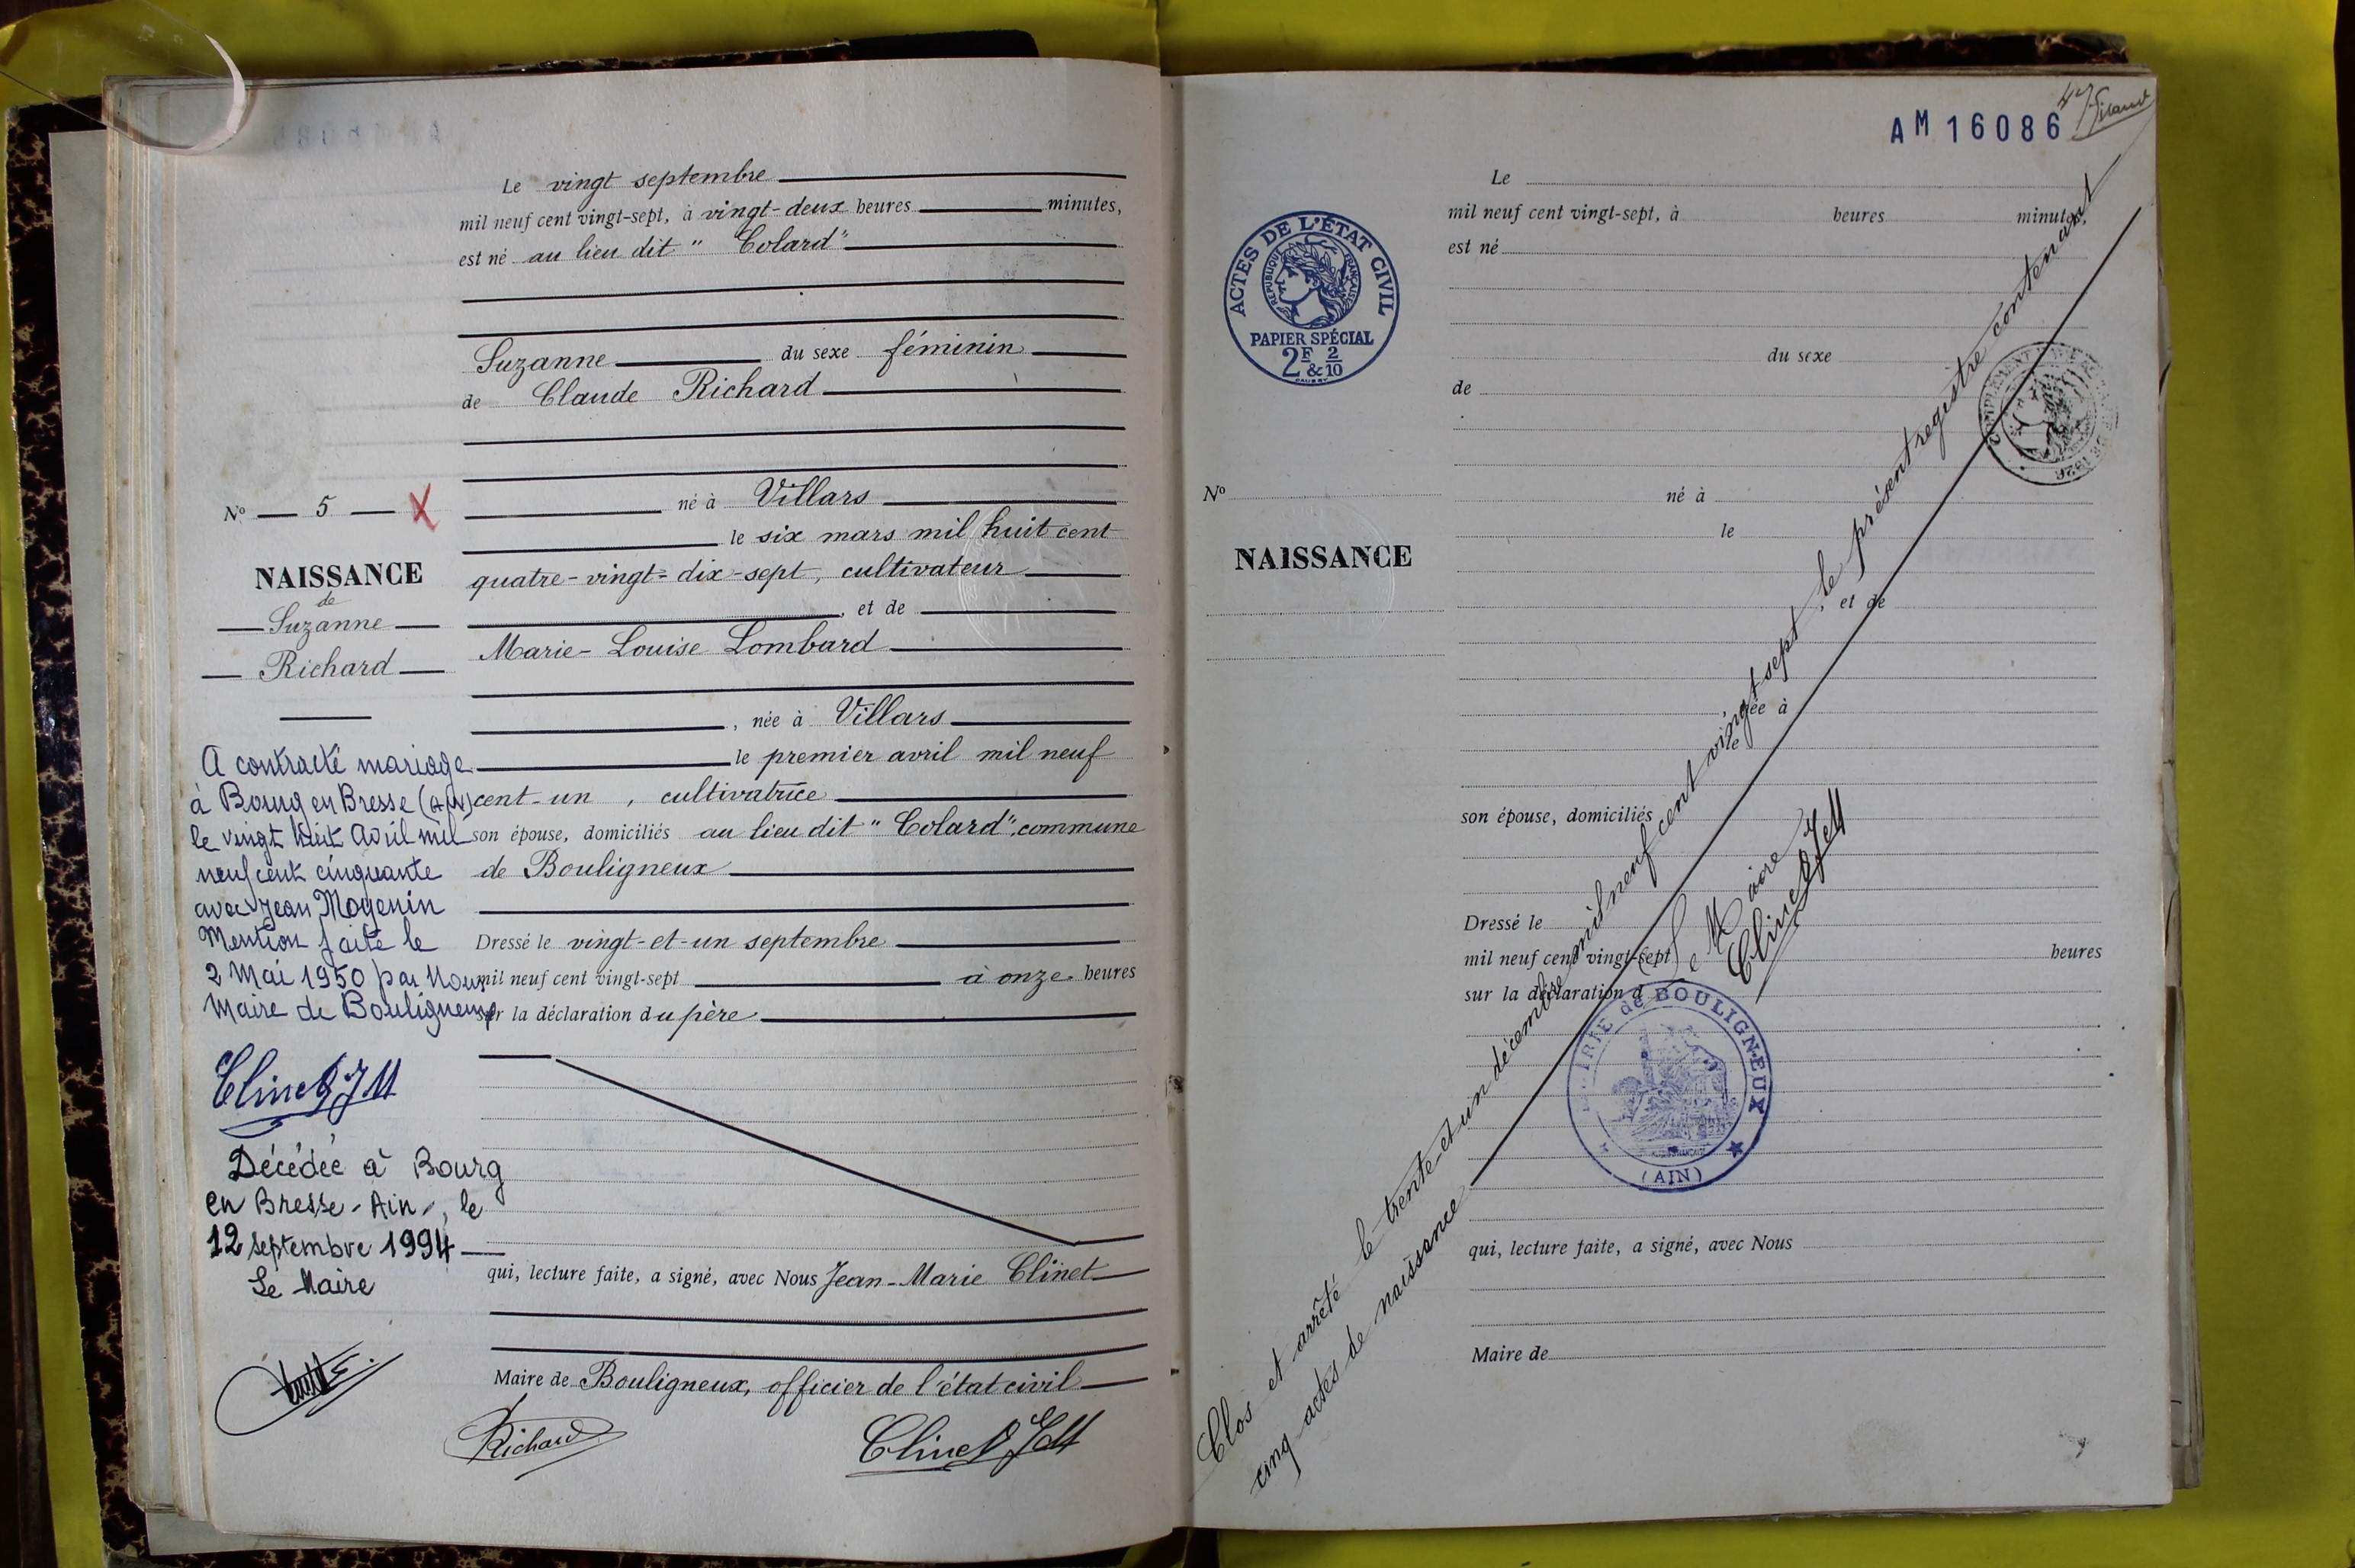 Le vingt septembre
mil neuf cent vingt-sept, à vingt-deux heures minutes,
est né au lieu dit "Colard"
Suzanne du sexe féminin
de Claude Richard
né à Villars
le six mars mil huit cent
quatre-vingt-dix-sept, cultivateur
, et de
Marie-Louise Lombard
, née à Villars
le premier avril mil neuf
cent-un, cultivatrice
son épouse, domiciliés au lieu dit "Colard", commune
de Bouligneux
Dressé le vingt-et-un septembre
mil neuf cent vingt-sept à onze heures
sur la déclaration du père
qui, lecture faite, a signé, avec Nous Jean-Marie Clinet
Maire de Bouligneux, officier de l'état civil
Richard
Clinet JM
No 5 X
NAISSANCE
de
Suzanne
Richard
A contracté mariage
à Bourg en Bresse (Ain)
le vingt huit Avril mil
neuf cent cinquante
avec Jean Moyenin
Mention faite le
2 Mai 1950 par Nous
Maire de Bouligneux
Clinet JM
Décédée à Bourg
en Bresse - Ain -, le
12 septembre 1994
Le Maire
AM 16086
ACTES DE L'ÉTAT CIVIL
RÉPUBLIQUE FRANÇAISE
PAPIER SPÉCIAL
2F & 2/10
Le
mil neuf cent vingt-sept, à heures minutes,
est né
du sexe
de
No
né à
le
NAISSANCE
, et de
, née à
le
son épouse, domiciliés
Dressé le
mil neuf cent vingt-sept heures
sur la déclaration d
qui, lecture faite, a signé, avec Nous
Maire de
Clos et arrêté le trente-et-un décembre mil neuf cent vingt sept, le présent registre contenant
cinq actes de naissance
Le Maire
Clinet JM
MAIRIE de BOULIGNEUX
(AIN)